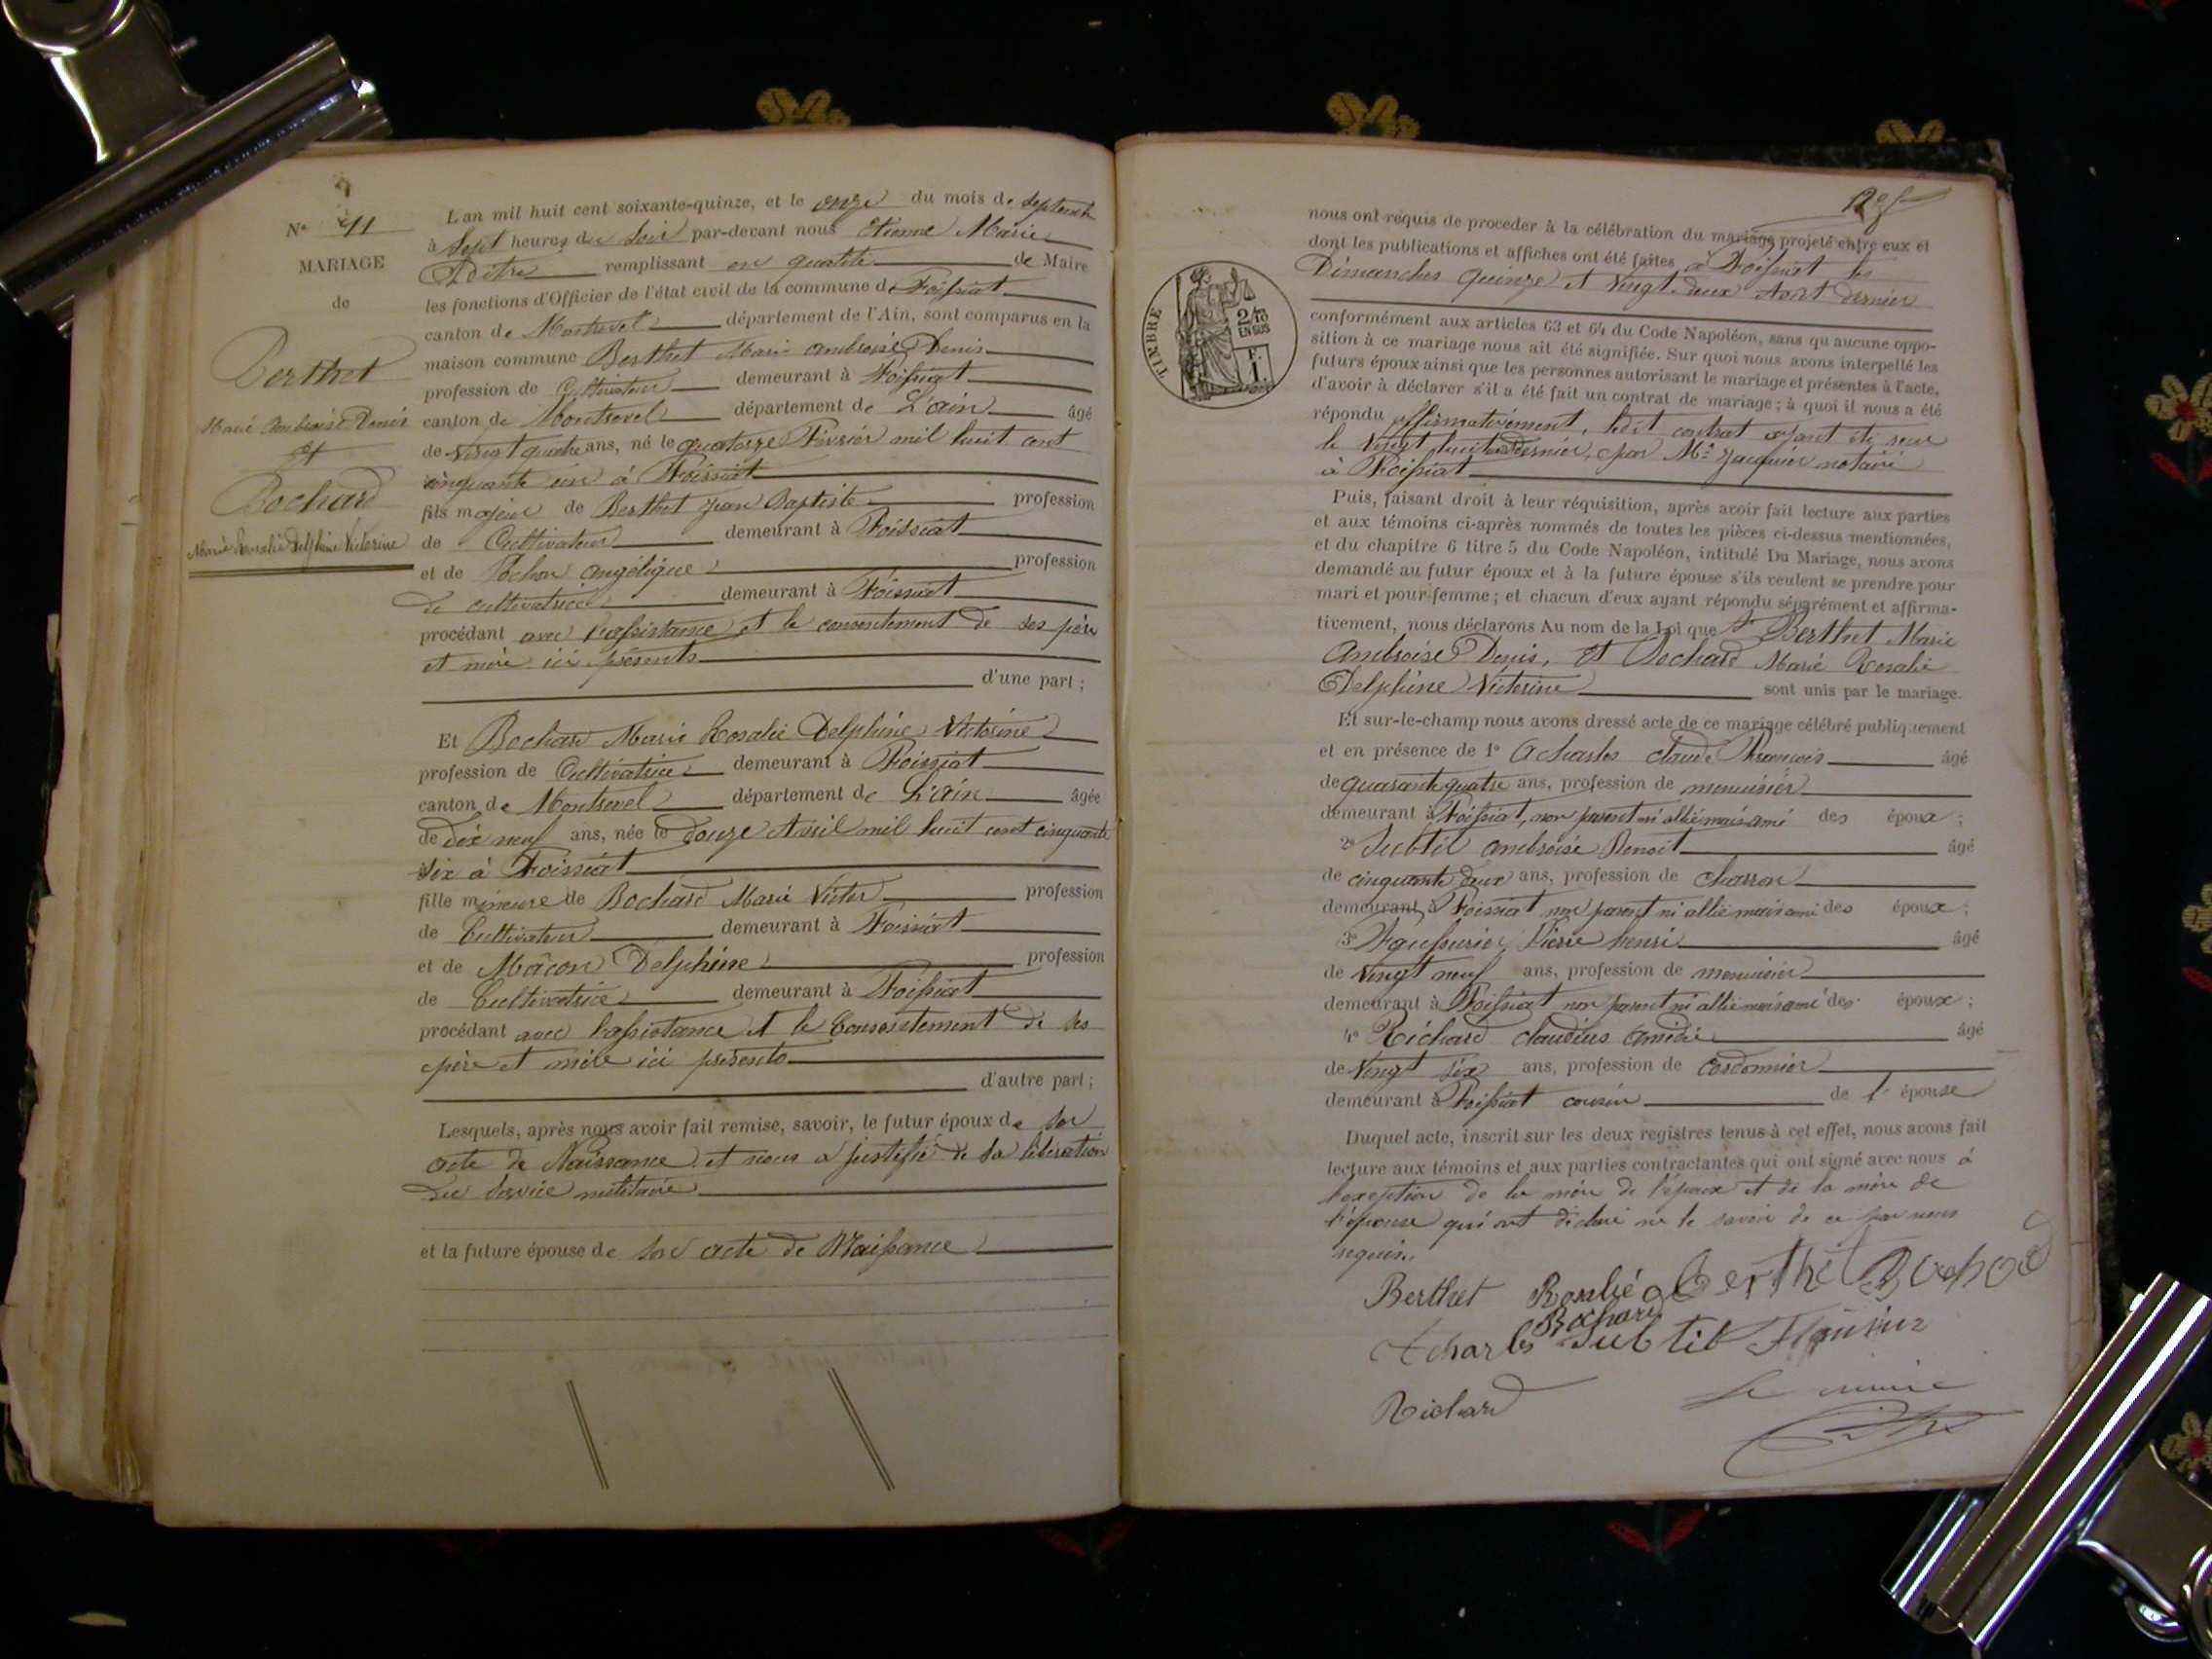 N° 11
MARIAGE
de
Berthet
Marie Ambroise Denis
et
Bochard
Marie Rosalie Delphine Victorine
L'an mil huit cent soixante-quinze, et le onze du mois de septembre
à Sept heures du Soir par-devant nous Etienne Marie
remplissant en qualité de Maire
les fonctions d'Officier de l'état civil de la commune de Foissiat
canton de Montrevel département de l'Ain, sont comparus en la
maison commune Berthet Marie Ambroise Denis
profession de Cultivateur demeurant à Foissiat
canton de Montrevel département de L'ain âgé
de vingt quatre ans, né le quatorze Février mil huit cent
cinquante un à Foissiat
fils majeur de Berthet Jean Baptiste profession
de Cultivateur demeurant à Foissiat
et de Pochon angélique profession
de cultivatrice demeurant à Foissiat
procédant avec l'assistance et le consentement de ses père
et mère ici présents
d'une part ;
Et Bochard Marie Rosalie Delphine Victorine
profession de Cultivatrice demeurant à Foissiat
canton de Montrevel département de L'ain âgée
de dix neuf ans, née le douze Avril mil huit cent cinquante
six à Foissiat
fille mineure de Bochard Marie Victor profession
de Cultivateur demeurant à Foissiat
et de Mâcon Delphine profession
de Cultivatrice demeurant à Foissiat
procédant avec l'assistance et le Consentement de ses
père et mère ici présents
d'autre part ;
Lesquels, après nous avoir fait remise, savoir, le futur époux de son
acte de Naissance et nous a justifié de sa libération
du service militaire
et la future épouse de son acte de Naissance
nous ont requis de procéder à la célébration du mariage projeté entre eux et
dont les publications et affiches ont été faites à Foissiat les
Dimanches quinze et vingt deux Août dernier
TIMBRE
2/10
EN SUS
conformément aux articles 63 et 64 du Code Napoléon, sans qu'aucune oppo-
sition à ce mariage nous ait été signifiée. Sur quoi nous avons interpellé les
futurs époux ainsi que les personnes autorisant le mariage et présentes à l'acte,
d'avoir à déclarer s'il a été fait un contrat de mariage ; à quoi il nous a été
répondu affirmativement, ledit contrat ayant été reçu
le vingt huit dernier, par Me Jacquier notaire
à Foissiat
Puis, faisant droit à leur réquisition, après avoir fait lecture aux parties
et aux témoins ci-après nommés de toutes les pièces ci-dessus mentionnées,
et du chapitre 6 titre 5 du Code Napoléon, intitulé Du Mariage, nous avons
demandé au futur époux et à la future épouse s'ils veulent se prendre pour
mari et pour femme ; et chacun d'eux ayant répondu séparément et affirma-
tivement, nous déclarons Au nom de la Loi que Berthet Marie
Ambroise Denis, et Bochard Marie Rosalie
Delphine Victorine sont unis par le mariage.
Et sur-le-champ nous avons dressé acte de ce mariage célébré publiquement
et en présence de 1° Acharles Claude François âgé
de quarante quatre ans, profession de menuisier
demeurant à Foissiat, non parent ni allié mais ami des époux ;
2° Subtil ambroise Benoit âgé
de cinquante deux ans, profession de charron
demeurant à Foissiat non parent ni allié mais ami des époux ;
3° Pierre henri âgé
de vingt neuf ans, profession de menuisier
demeurant à Foissiat non parent ni allié mais ami des époux ;
4° Richard claudius amédée âgé
de vingt six ans, profession de cordonnier
demeurant à Foissiat cousin de l'épouse
Duquel acte, inscrit sur les deux registres tenus à cet effet, nous avons fait
lecture aux témoins et aux parties contractantes qui ont signé avec nous à
l'exception de la mère de l'époux et de la mère de
l'épouse qui ont déclaré ne le savoir de ce par nous
requis.
Berthet Rosalie Berthet Bochard
Bochard
Acharles Subtil
Richard Le maire